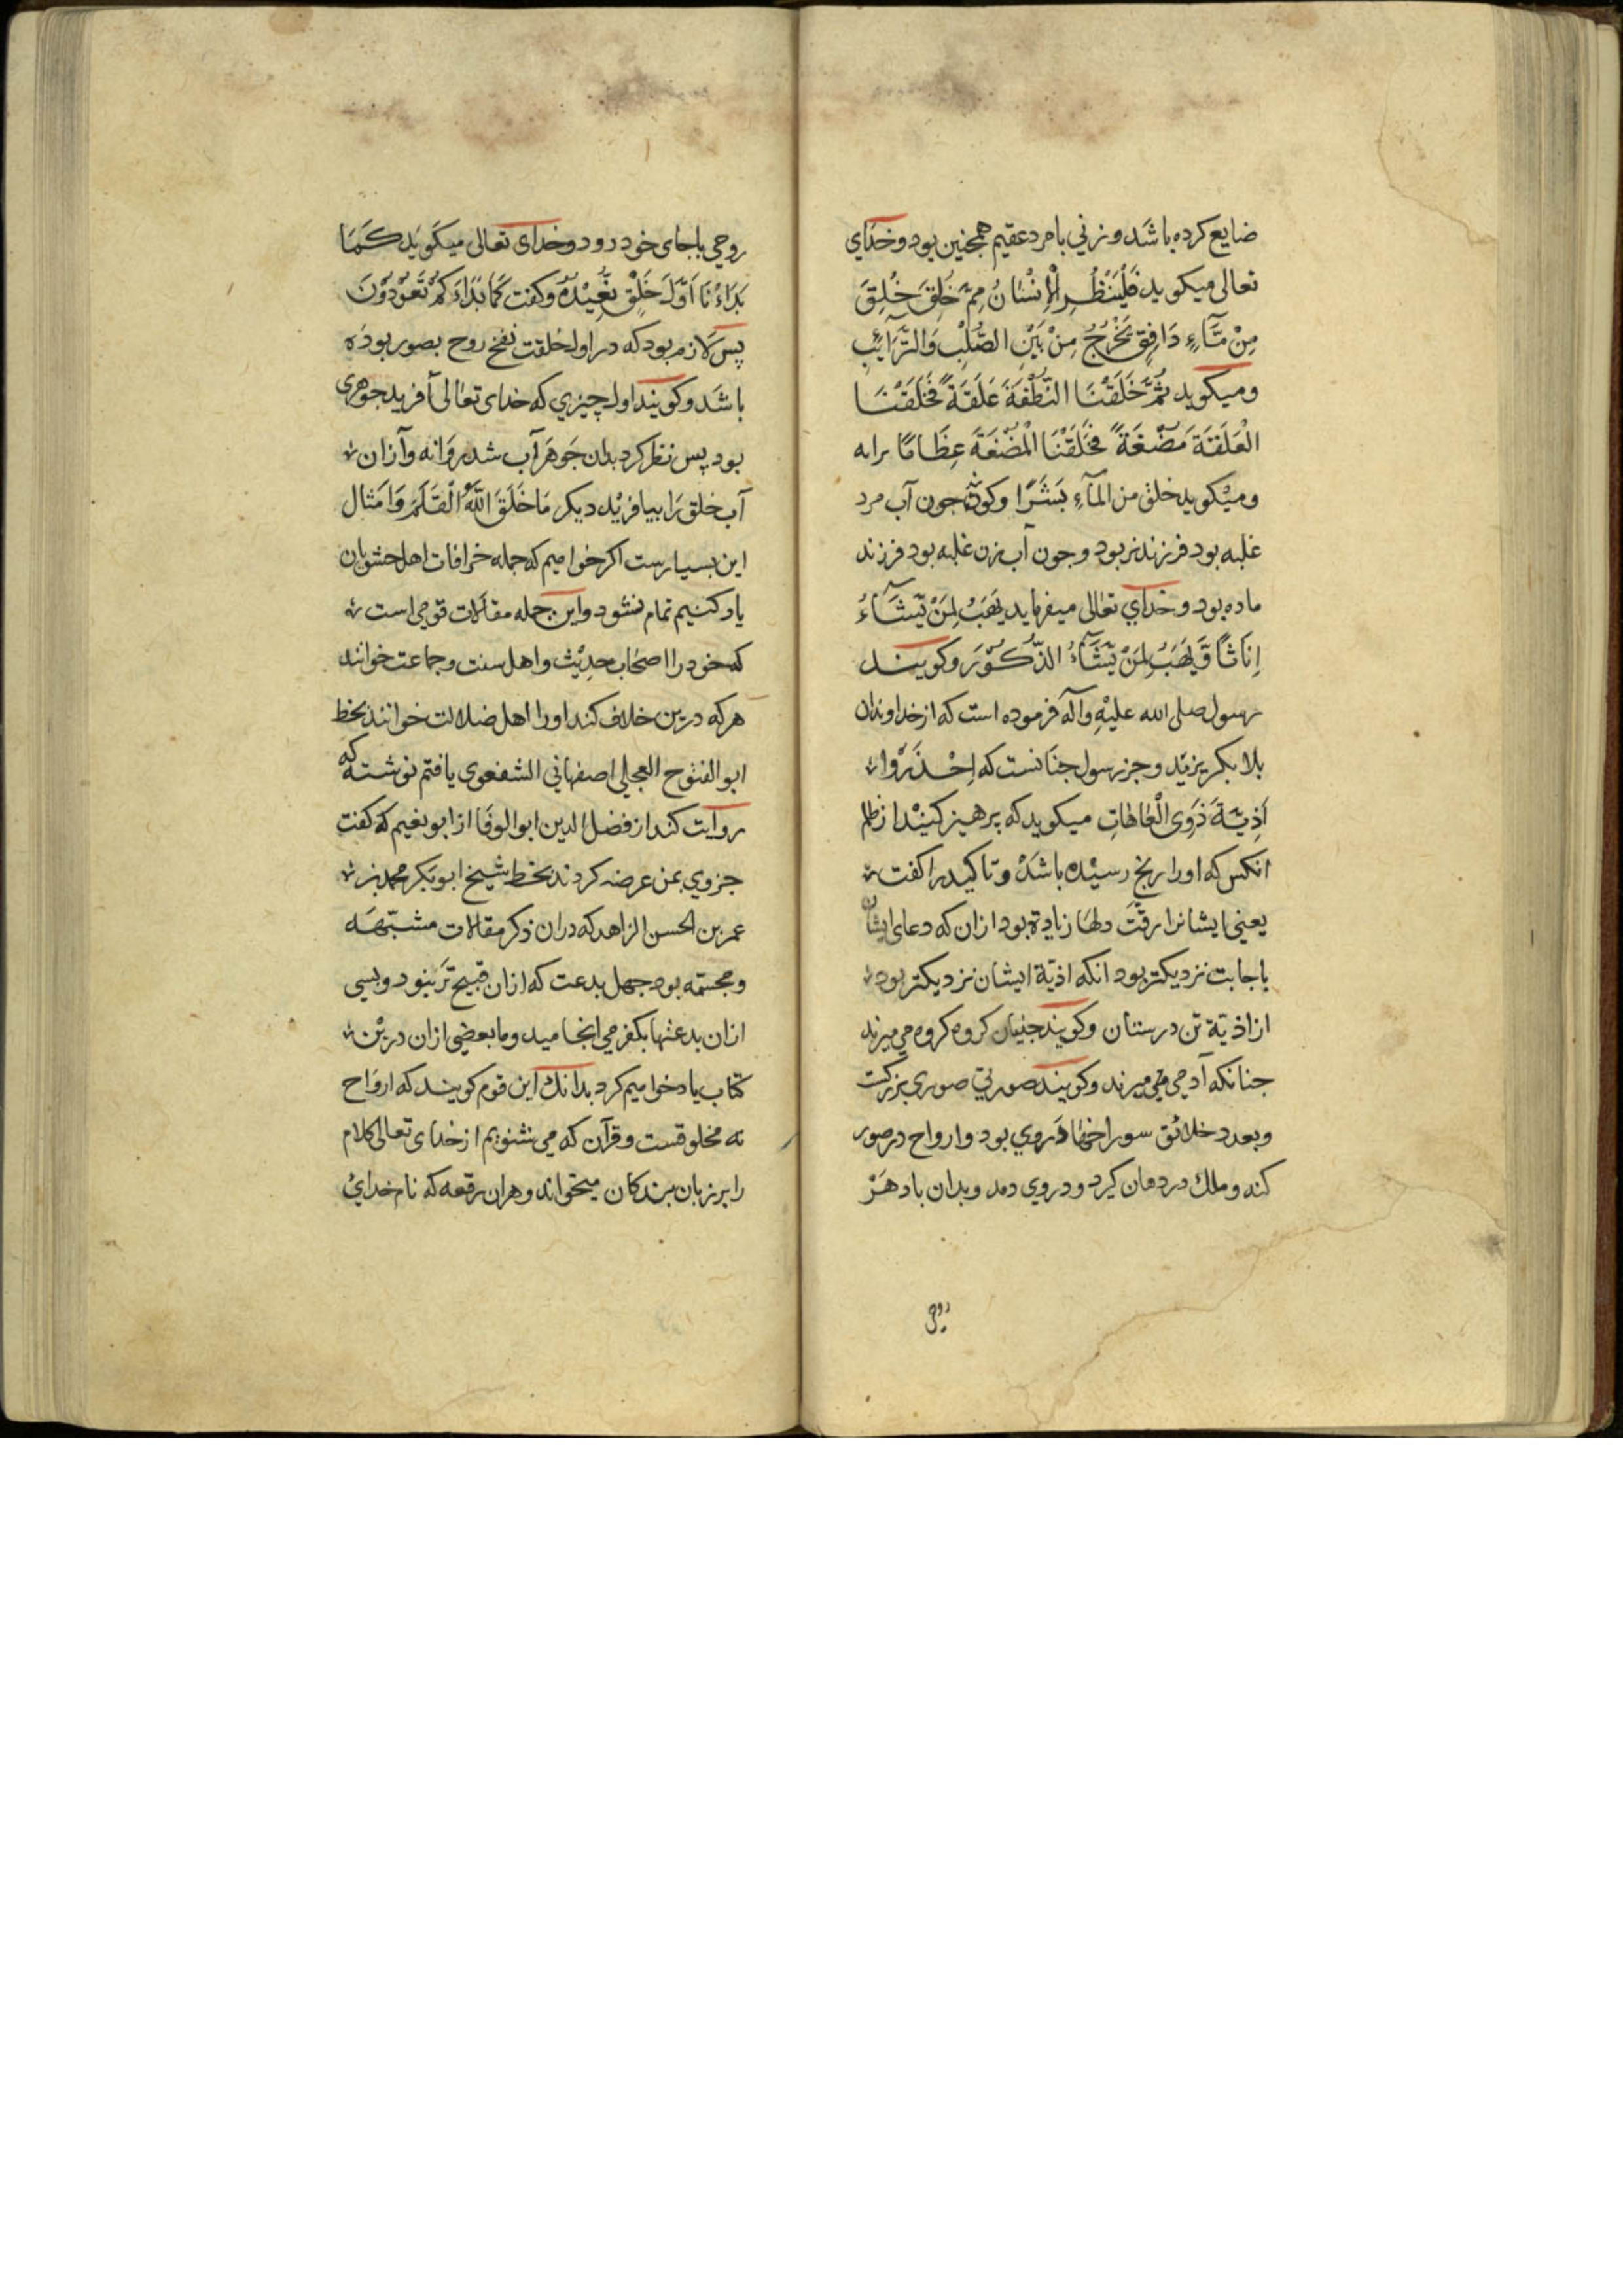 ضایع کرده باشد و زنی با مرد عقیم همچنین بود و خدای
تعالی میکوید فَلْیَنْظُرِ الْاِنْسٰانُ مِمَّ خُلِقَ خُلِقَ
مِنْ مَّآءٍ دَافِقٍ یَخْرُجُ مِنْ بَیْنِ الصُّلْبِ وَالتَّرَآئِبِ
و میکوید ثُمَّ خَلَقْنَا النُّطْفَةَ عَلَقَةً فَخَلَقْنَا
الْعَلَقَةَ مُضْغَةً فَخَلَقْنَا الْمُضْغَةَ عِظَامًا برابه
و میکوید خلق من المآءِ بَشَرًا وکوند جون آب مرد
غلبه بود فرزند نر بود و جون آب زن غلبه بود فرزند
ماده بود و خدای تعالی میفرماید یَهَبُ لِمَنْ یَّشَآءُ
اِنَاثًا وَّیَهَبُ لِمَنْ یَّشَآءُ الذُّکُوْرَ وکویند
رسول صلی الله علیْهِ وآله فرموده است که از خداوندان
بلا بکریزید و جز رسول جنانست که اِحْذَرُوا
اَذِیَّةَ ذَوِی الْعَاهَاتِ میکوید که پرهیز کنیْد از ظلم
انکس که او را رنج رسیْده باشدْ و تاکید را کفت
یعنی ایشانرا رقّت دلها زیادة بود ازان که دعای ایشان
باجابت نزدیکتر بود انکه اذیّة ایشان نزدیکتر بود
از اذیّة تن درستان وکویند جنیان کروه کروه می میرند
جنانکه آدمی می میرند وکویند صورتی صوری بزرکت
و بعدد خلائق سوراخها دروی بود و ارواح در صور
کند و ملك در دهان کیرد و دروی دمد و بدان باد هَرْ
روحی
روحی باجای خود رود و خدای تعالی میکویَد کَمَا
بَدَاءْنَا اَوَّلَ خَلْقٍ نُّعِیْدُهُ وکفت کَمَا بَدَاءَ کُمْ تَعُوْدُوْنَ
پس لازم بود که در اول خلقت نفخ روح بصور بوده
باشد وکویند اول چیزی که خدای تعالی آفرید جوهری
بود پس نظر کرد بدان جَوهَر آب شد روَانه وآزان
آب خلق رَا بیافرید دیکر مَا خَلَقَ اللّٰهُ الْقَلَمَ وَامثال
این بسیارست اکر خواهیم که جمله خرافات اهل حشویان
یاد کنیم تمام نشود و این جمله مقالات قومی است
که خود را اصحاب حدیْث و اهل سنت و جماعت خوانند
هر که درین خلاف کند او را اهل ضلالت خوانند بخط
ابو الفتوح العجلی اصفهانی الشفعوی یافتم نوشته که
روایت کند از فضل الدین ابو الوفا از ابو نعیم که کفت
جزوی بمن عرضه کردند بخط شیخ ابو بکر محمد بن
عمر بن الحسن الزاهد که دران ذکر مقالات مشبّهَه
و مجسّمه بود جهل بدعت که ازان قبیح تر نبود و بسی
ازان بدعتها بکفر می انجامید و ما بعضی ازان دریْن
کتاب یاد خواهیم کرد بدانك این قوم کویند که ارواح
نه مخلوقست و قرآن که می شنویم از خدای تعالی کلام
را بر زبان بندکان میخواند و هران رقعه که نام خدایْ